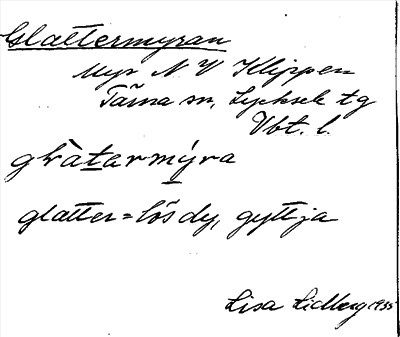 Glattermyran
Myr N V Klippen
Tärna sn, Lycksele tg
Vbt. l.
glàtarmýra
glatter = lösdy, gyttja
Lisa Lidberg 1935